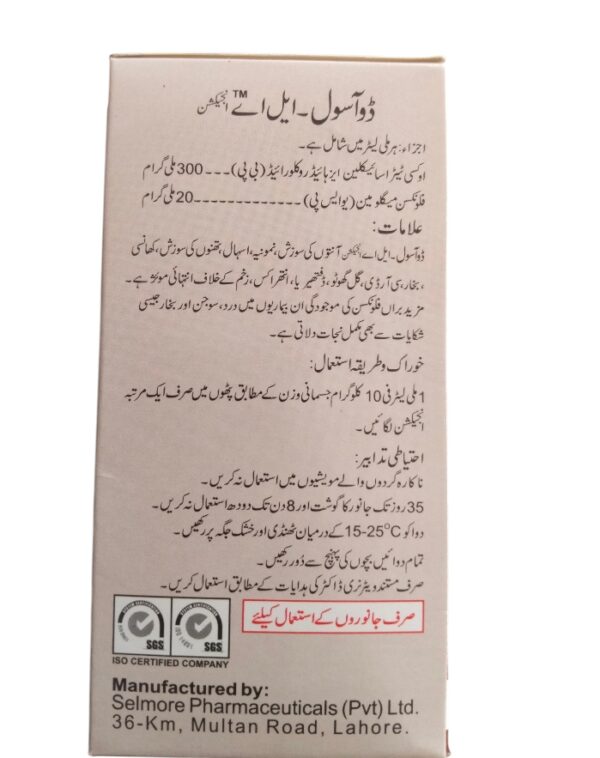 ڈوآسول۔ ایل اے™ انجیکشن
اجزاء: ہر ملی لیٹر میں شامل ہے۔
اوکسی ٹیٹراسائیکلین ایز ہائیڈروکلورائیڈ (بی پی)۔۔۔300 ملی گرام
فلونکسن میگلومین (یو ایس پی)۔۔۔۔۔۔۔۔۔۔۔۔20 ملی گرام
علامات:
ڈوآسول۔ ایل اے انجیکشن آنتوں کی سوزش، نمونیہ، اسہال، تھنوں کی سوزش، کھانسی
، بخار، بی آر ڈی، گل گھوٹو، ڈفتھیریا، انتھراکس، زخم کے خلاف انتہائی موثر ہے۔
مزید براں فلونکسن کی موجودگی ان بیماریوں میں درد، سوجن اور بخار جیسی
شکایات سے بھی مکمل نجات دلاتی ہے۔
خوراک و طریقہ استعمال:
1 ملی لیٹر فی 10 کلوگرام جسمانی وزن کے مطابق پٹھوں میں صرف ایک مرتبہ
انجیکشن لگائیں۔
احتیاطی تدابیر:
ناکارہ گردوں والے مویشیوں میں استعمال نہ کریں۔
35 روز تک جانور کا گوشت اور 8 دن تک دودھ استعمال نہ کریں۔
دوا کو 15-25°C کے درمیان ٹھنڈی اور خشک جگہ پر رکھیں۔
تمام دوائیں بچوں کی پہنچ سے دُور رکھیں۔
صرف مستند ویٹرنری ڈاکٹر کی ہدایات کے مطابق استعمال کریں۔
صرف جانوروں کے استعمال کیلئے
SGS SGS
ISO CERTIFIED COMPANY
Manufactured by:
Selmore Pharmaceuticals (Pvt) Ltd.
36-Km, Multan Road, Lahore.